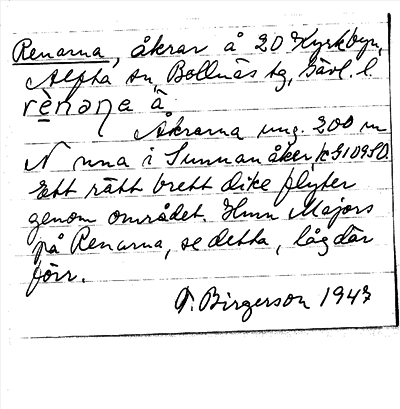 Renarna, åkrar å 20 Kyrkbyn,
Alfta sn, Bollnäs tg, Gävl. l.
rènaṇa å
Åkrarna ung. 200 m
N nna i Sunnanåker, k
Ett rätt brett dike flyter
genom området. Hmn Majors
på Renarna, se detta, låg där
förr.
T. Birgerson 1947